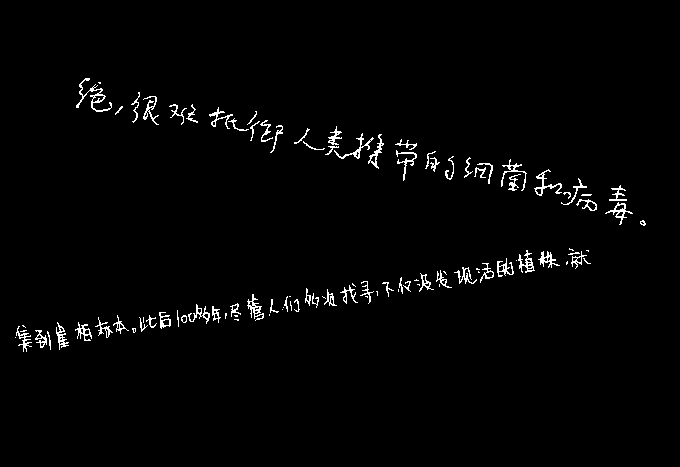 绝,很难抵御人类携带的细菌和病毒。
集到崖柏标本。此后100多年,尽管人们多次找寻,不仅没发现活的植株,就